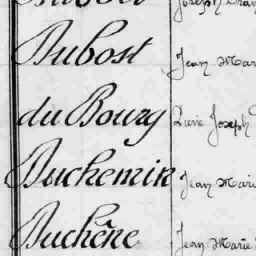 Joseph
Dubost Jean Mar
du Bourg Pierre Joseph
Duchemin Jean Marie
Duchêne Jean Marie